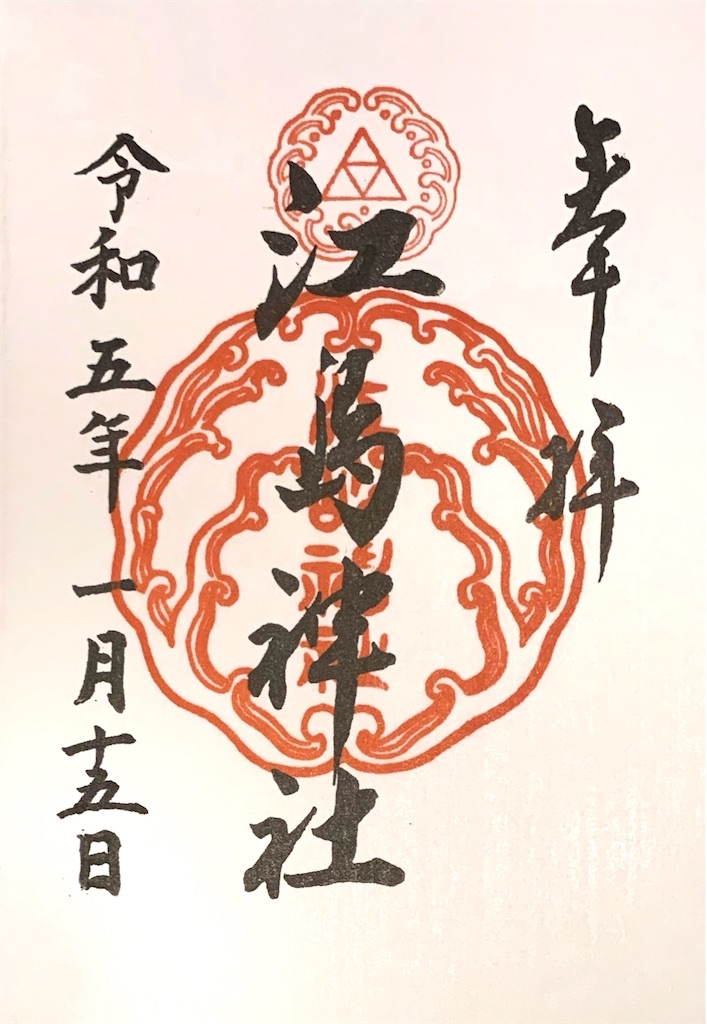 奉拝
江島神社
令和五年一月十五日